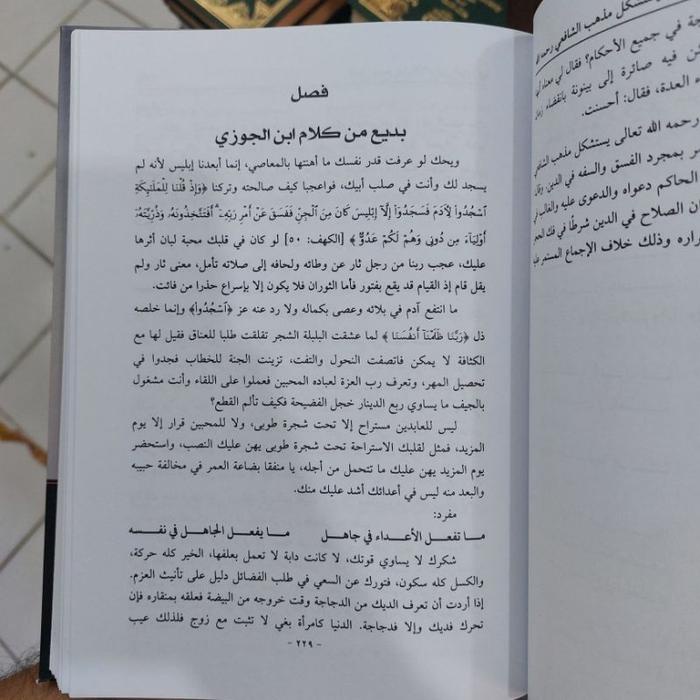 فصل
بديع من كلام ابن الجوزي
ويحك لو عرفت قدر نفسك ما أهنتها بالمعاصي، إنما أبعدنا إبليس لأنه لم
يسجد لك وأنت في صلب أبيك، فواعجبا كيف صالحته وتركتنا ﴿وَإِذْ قُلْنَا لِلْمَلَٰٓئِكَةِ
ٱسْجُدُوا۟ لِءَادَمَ فَسَجَدُوٓا۟ إِلَّآ إِبْلِيسَ كَانَ مِنَ ٱلْجِنِّ فَفَسَقَ عَنْ أَمْرِ رَبِّهِۦٓ ۗ أَفَتَتَّخِذُونَهُۥ وَذُرِّيَّتَهُۥٓ
أَوْلِيَآءَ مِن دُونِى وَهُمْ لَكُمْ عَدُوٌّۢ﴾ [الكهف: ٥٠] لو كان في قلبك محبة لبان أثرها
عليك، عجب ربنا من رجل ثار عن وطائه ولحافه إلى صلاته تأمل، معنى ثار ولم
يقل قام إذ القيام قد يقع بفتور فأما الثوران فلا يكون إلا بإسراع حذرا من فائت.
ما انتفع آدم في بلائه وعصى بكماله ولا رد عنه عز ﴿ٱسْجُدُوا۟﴾ وإنما خلصه
ذل ﴿رَبَّنَا ظَلَمْنَآ أَنفُسَنَا﴾ لما عشقت البلبلة الشجر تقلقت طلبا للعناق فقيل لها مع
الكثافة لا يمكن فاتصفت النحول والتفت، تزينت الجنة للخطاب فجدوا في
تحصيل المهر، وتعرف رب العزة لعباده المحبين فعملوا على اللقاء وأنت مشغول
بالجيف ما يساوي ربع الدينار خجل الفضيحة فكيف تألم القطع؟
ليس للعابدين مستراح إلا تحت شجرة طوبى، ولا للمحبين قرار إلا يوم
المزيد، فمثل لقلبك الاستراحة تحت شجرة طوبى يهن عليك النصب، واستحضر
يوم المزيد يهن عليك ما تتحمل من أجله، يا منفقا بضاعة العمر في مخالفة حبيبه
والبعد منه ليس في أعدائك أشد عليك منك.
مفرد:
ما تفعل الأعداء في جاهل ما يفعل الجاهل في نفسه
شكرك لا يساوي قوتك، لا كانت دابة لا تعمل بعلفها، الخير كله حركة،
والكسل كله سكون، فتورك عن السعي في طلب الفضائل دليل على تأنيث العزم.
إذا أردت أن تعرف الديك من الدجاجة وقت خروجه من البيضة فعلقه بمنقاره فإن
تحرك فديك وإلا فدجاجة. الدنيا كامرأة بغي لا تثبت مع زوج فلذلك عيب
- ٢٢٩ -
ستشكل مذهب الشافعي رحمه الله
جة في جميع الأحكام؟ فقال لي
ن فيه صائرة إلى بينونة بانقضاء زمان
ء العدة، فقال: أحسنت.
رحمه الله تعالى يستشكل مذهب الشافعي
ر بمجرد الفسق والسفه في الدين، وقال
الحاكم دعواه والدعوى عليه والغالب في
ان الصلاح في الدين شرطًا في فك الحجر
راره وذلك خلاف الإجماع المستمر عليه